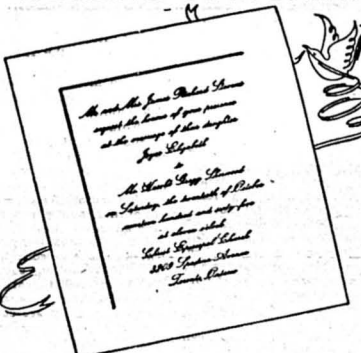 Mr and Mrs James Richard
request the honor of your presence
at the marriage of their daughter
Joyce Elizabeth
to
Mr Harold Gregg
on Saturday, the twentieth of October
nineteen hundred and sixty-five
at eleven o'clock
Episcopal Church
Avenue
Toronto,